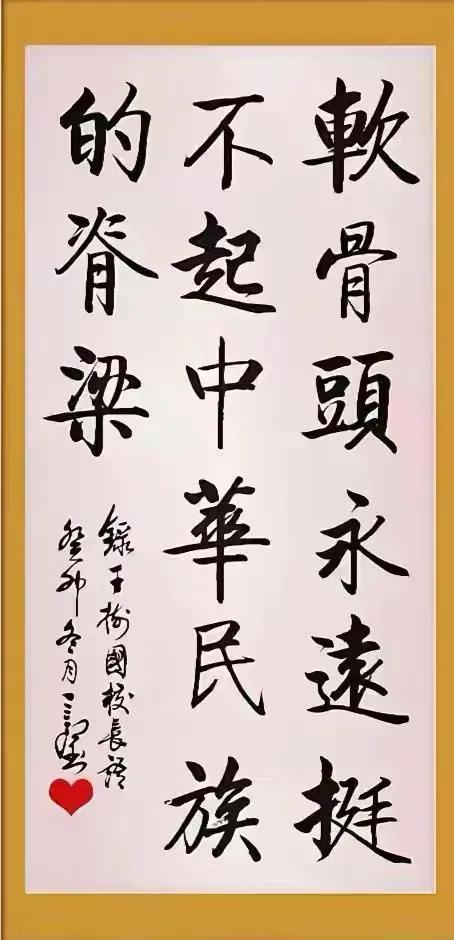 軟骨頭永遠挺
不起中華民族
的脊梁
録王樹國校長語
癸卯冬月